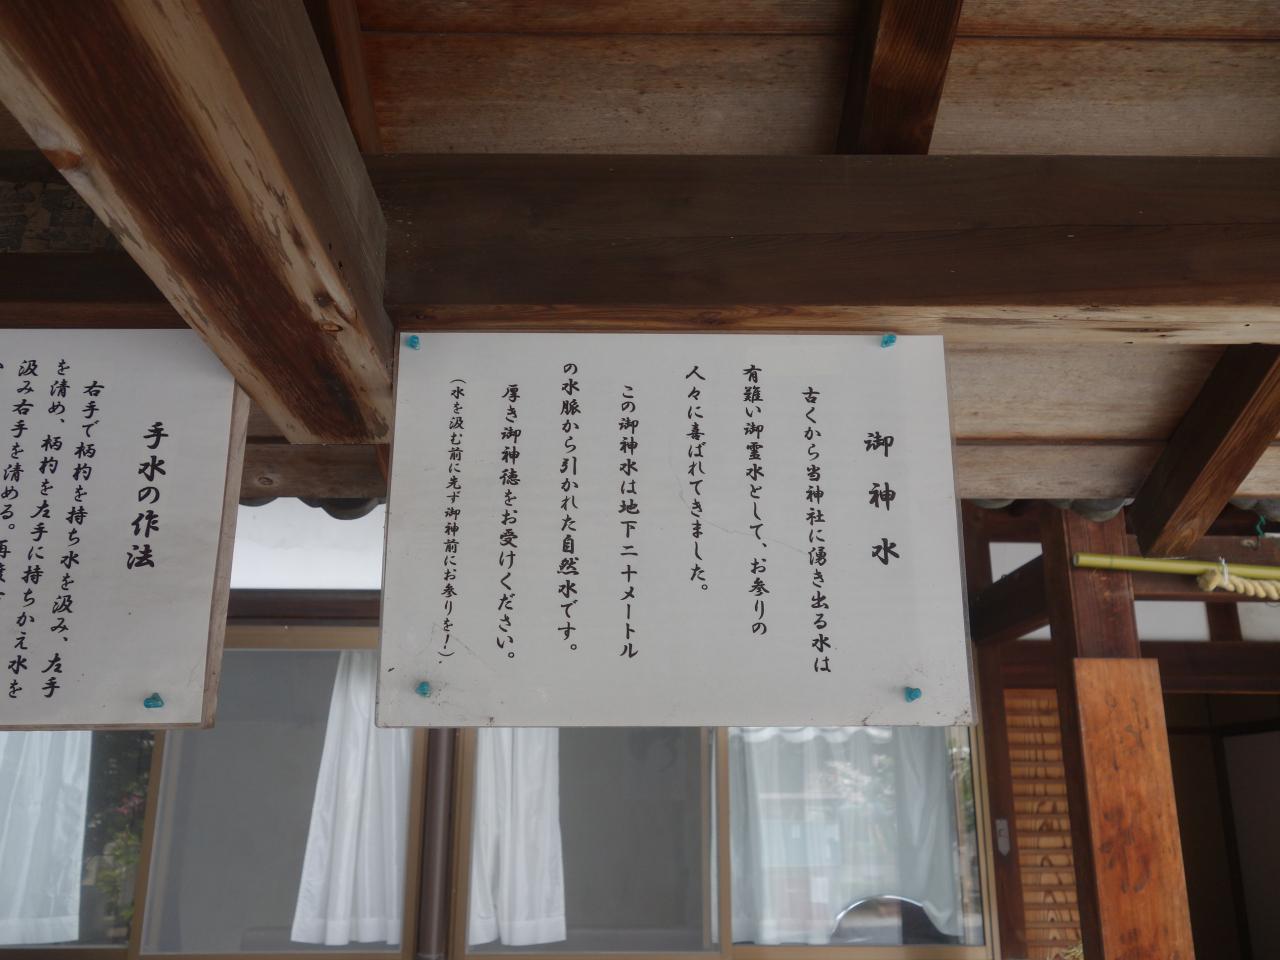 御神水
古くから当神社に湧き出る水は
有難い御霊水として、お参りの
人々に喜ばれてきました。
この御神水は地下二十メートル
の水脈から引かれた自然水です。
厚き御神徳をお受けください。
(水を汲む前に先ず御神前にお参りを!)
手水の作法
右手で柄杓を持ち水を汲み、左手
を清め、柄杓を左手に持ちかえ水を
汲み右手を清める。再度